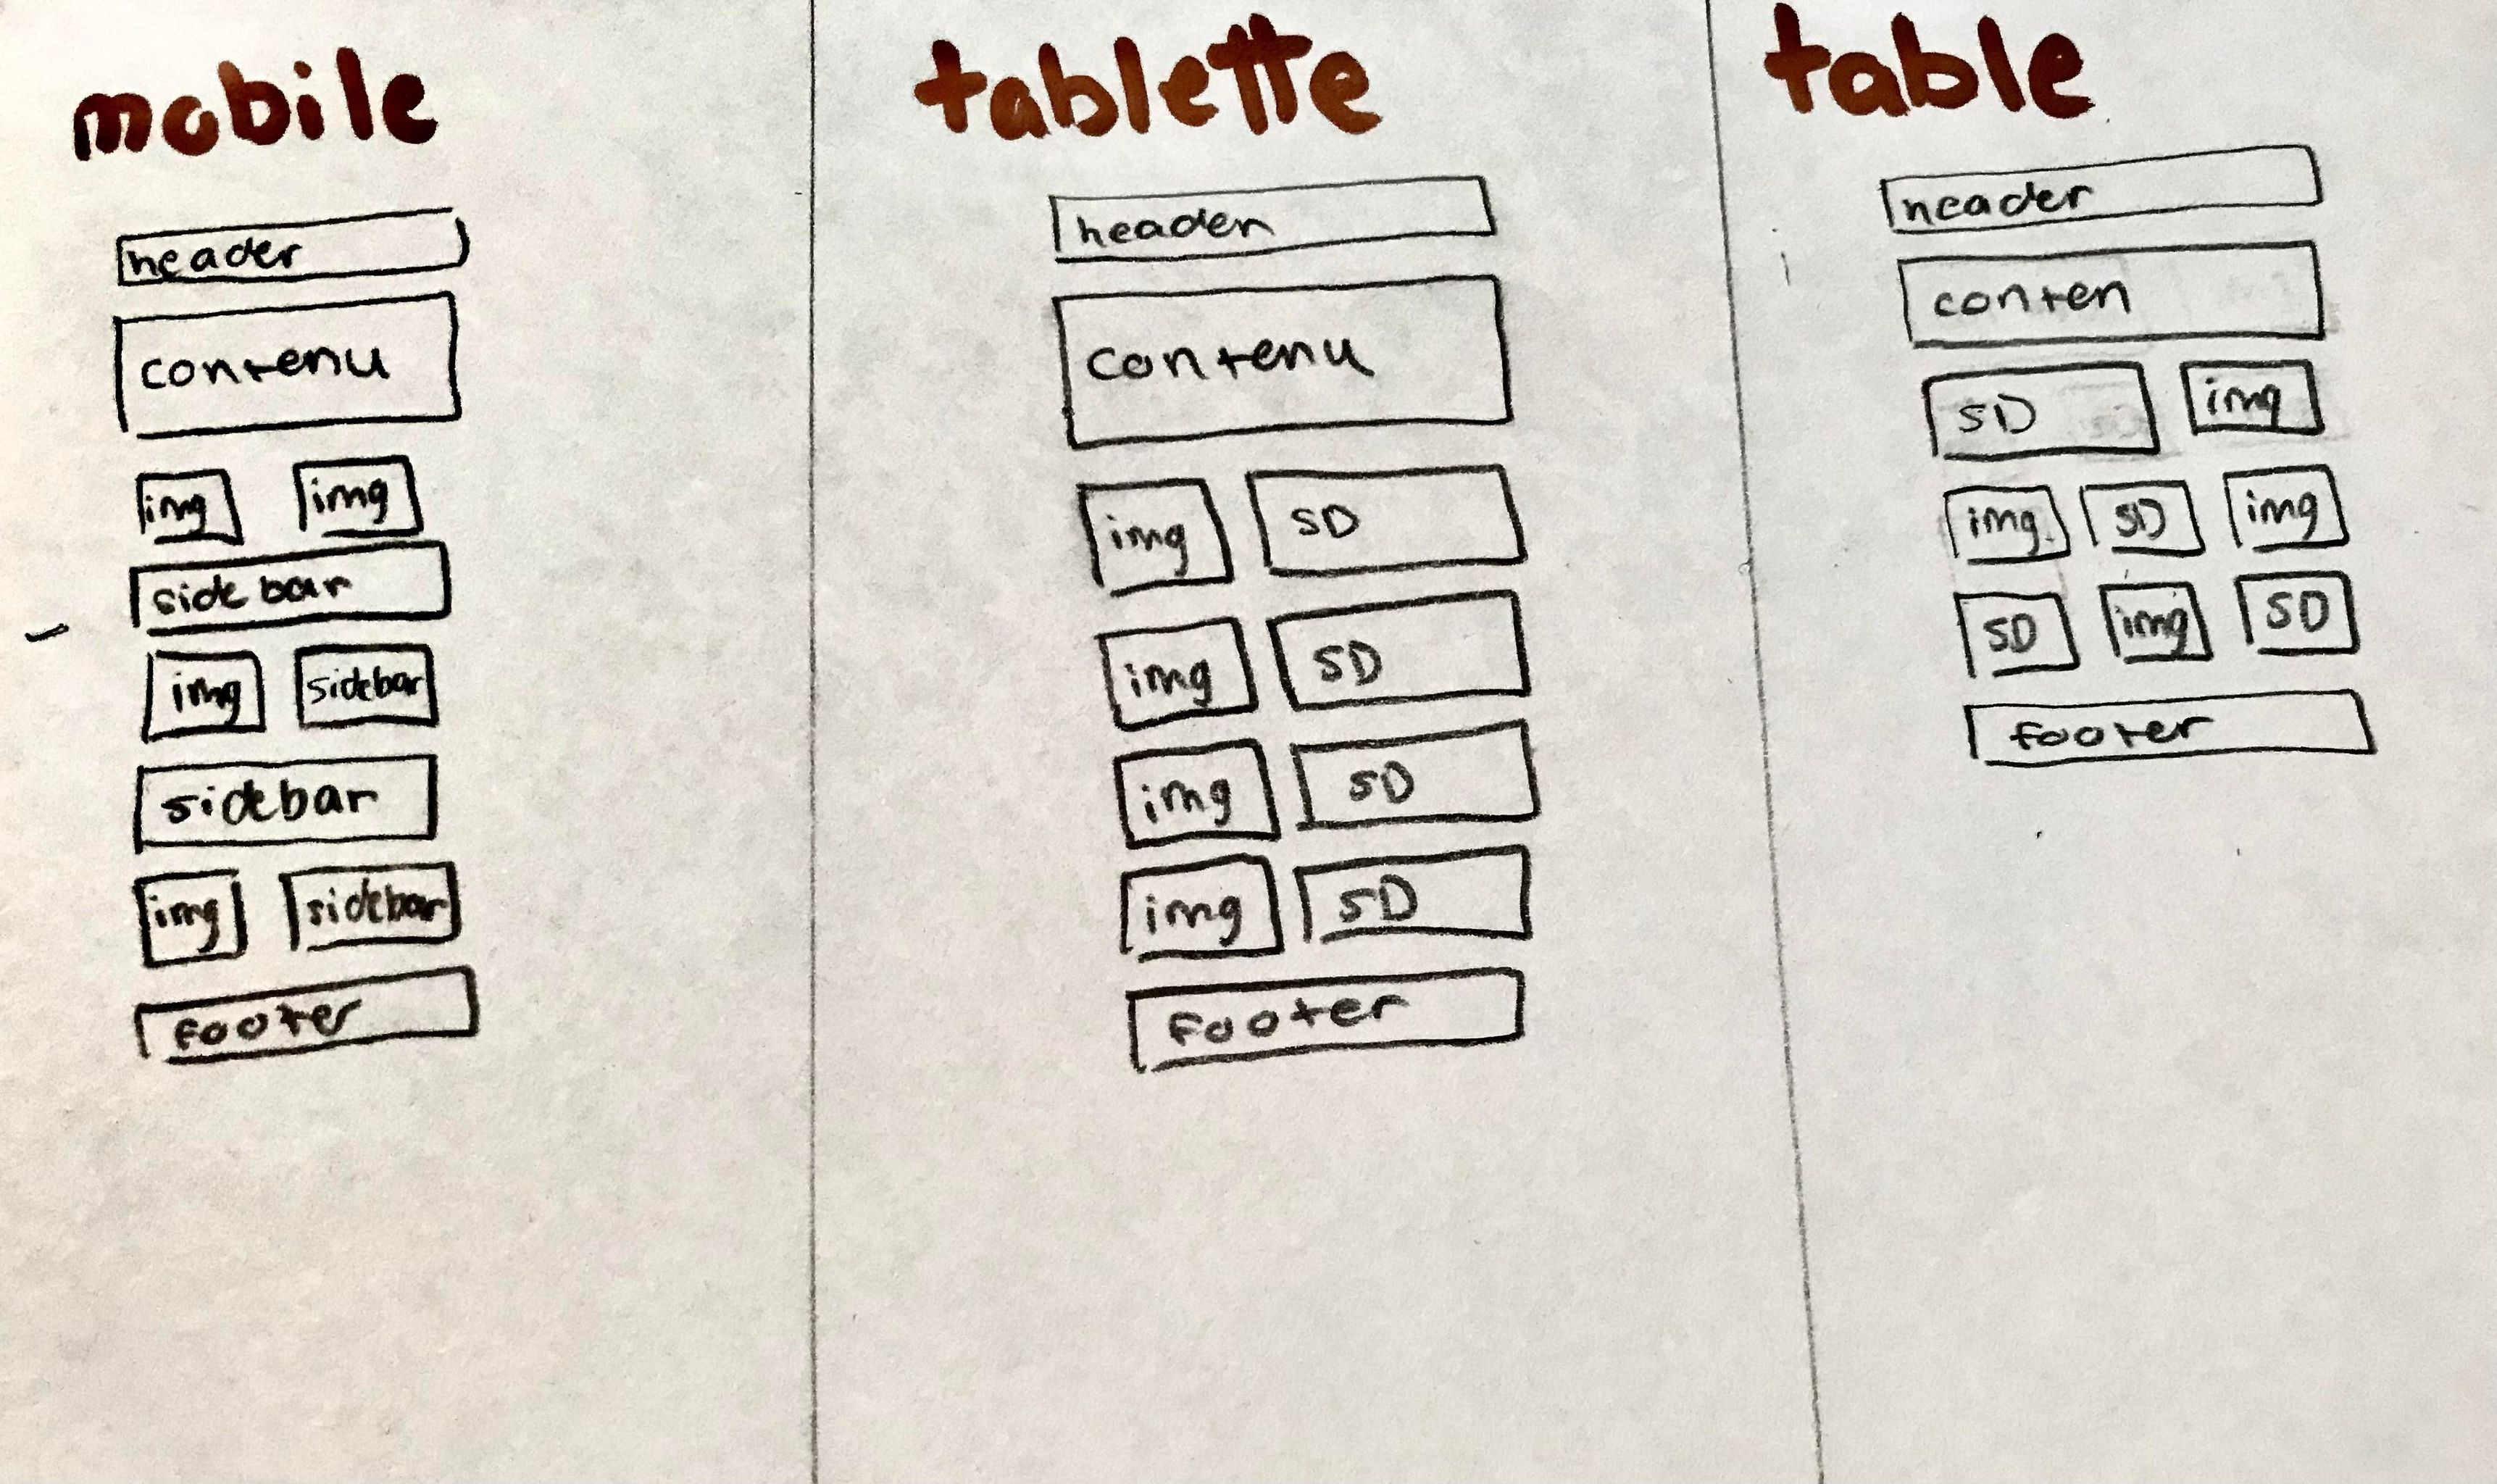 mobile
header
contenu
img img
side bar
img sidebar
sidebar
img sidebar
footer
tablette
header
contenu
img SD
img SD
img SD
img SD
footer
table
header
conten
SD img
img SD img
SD img SD
footer